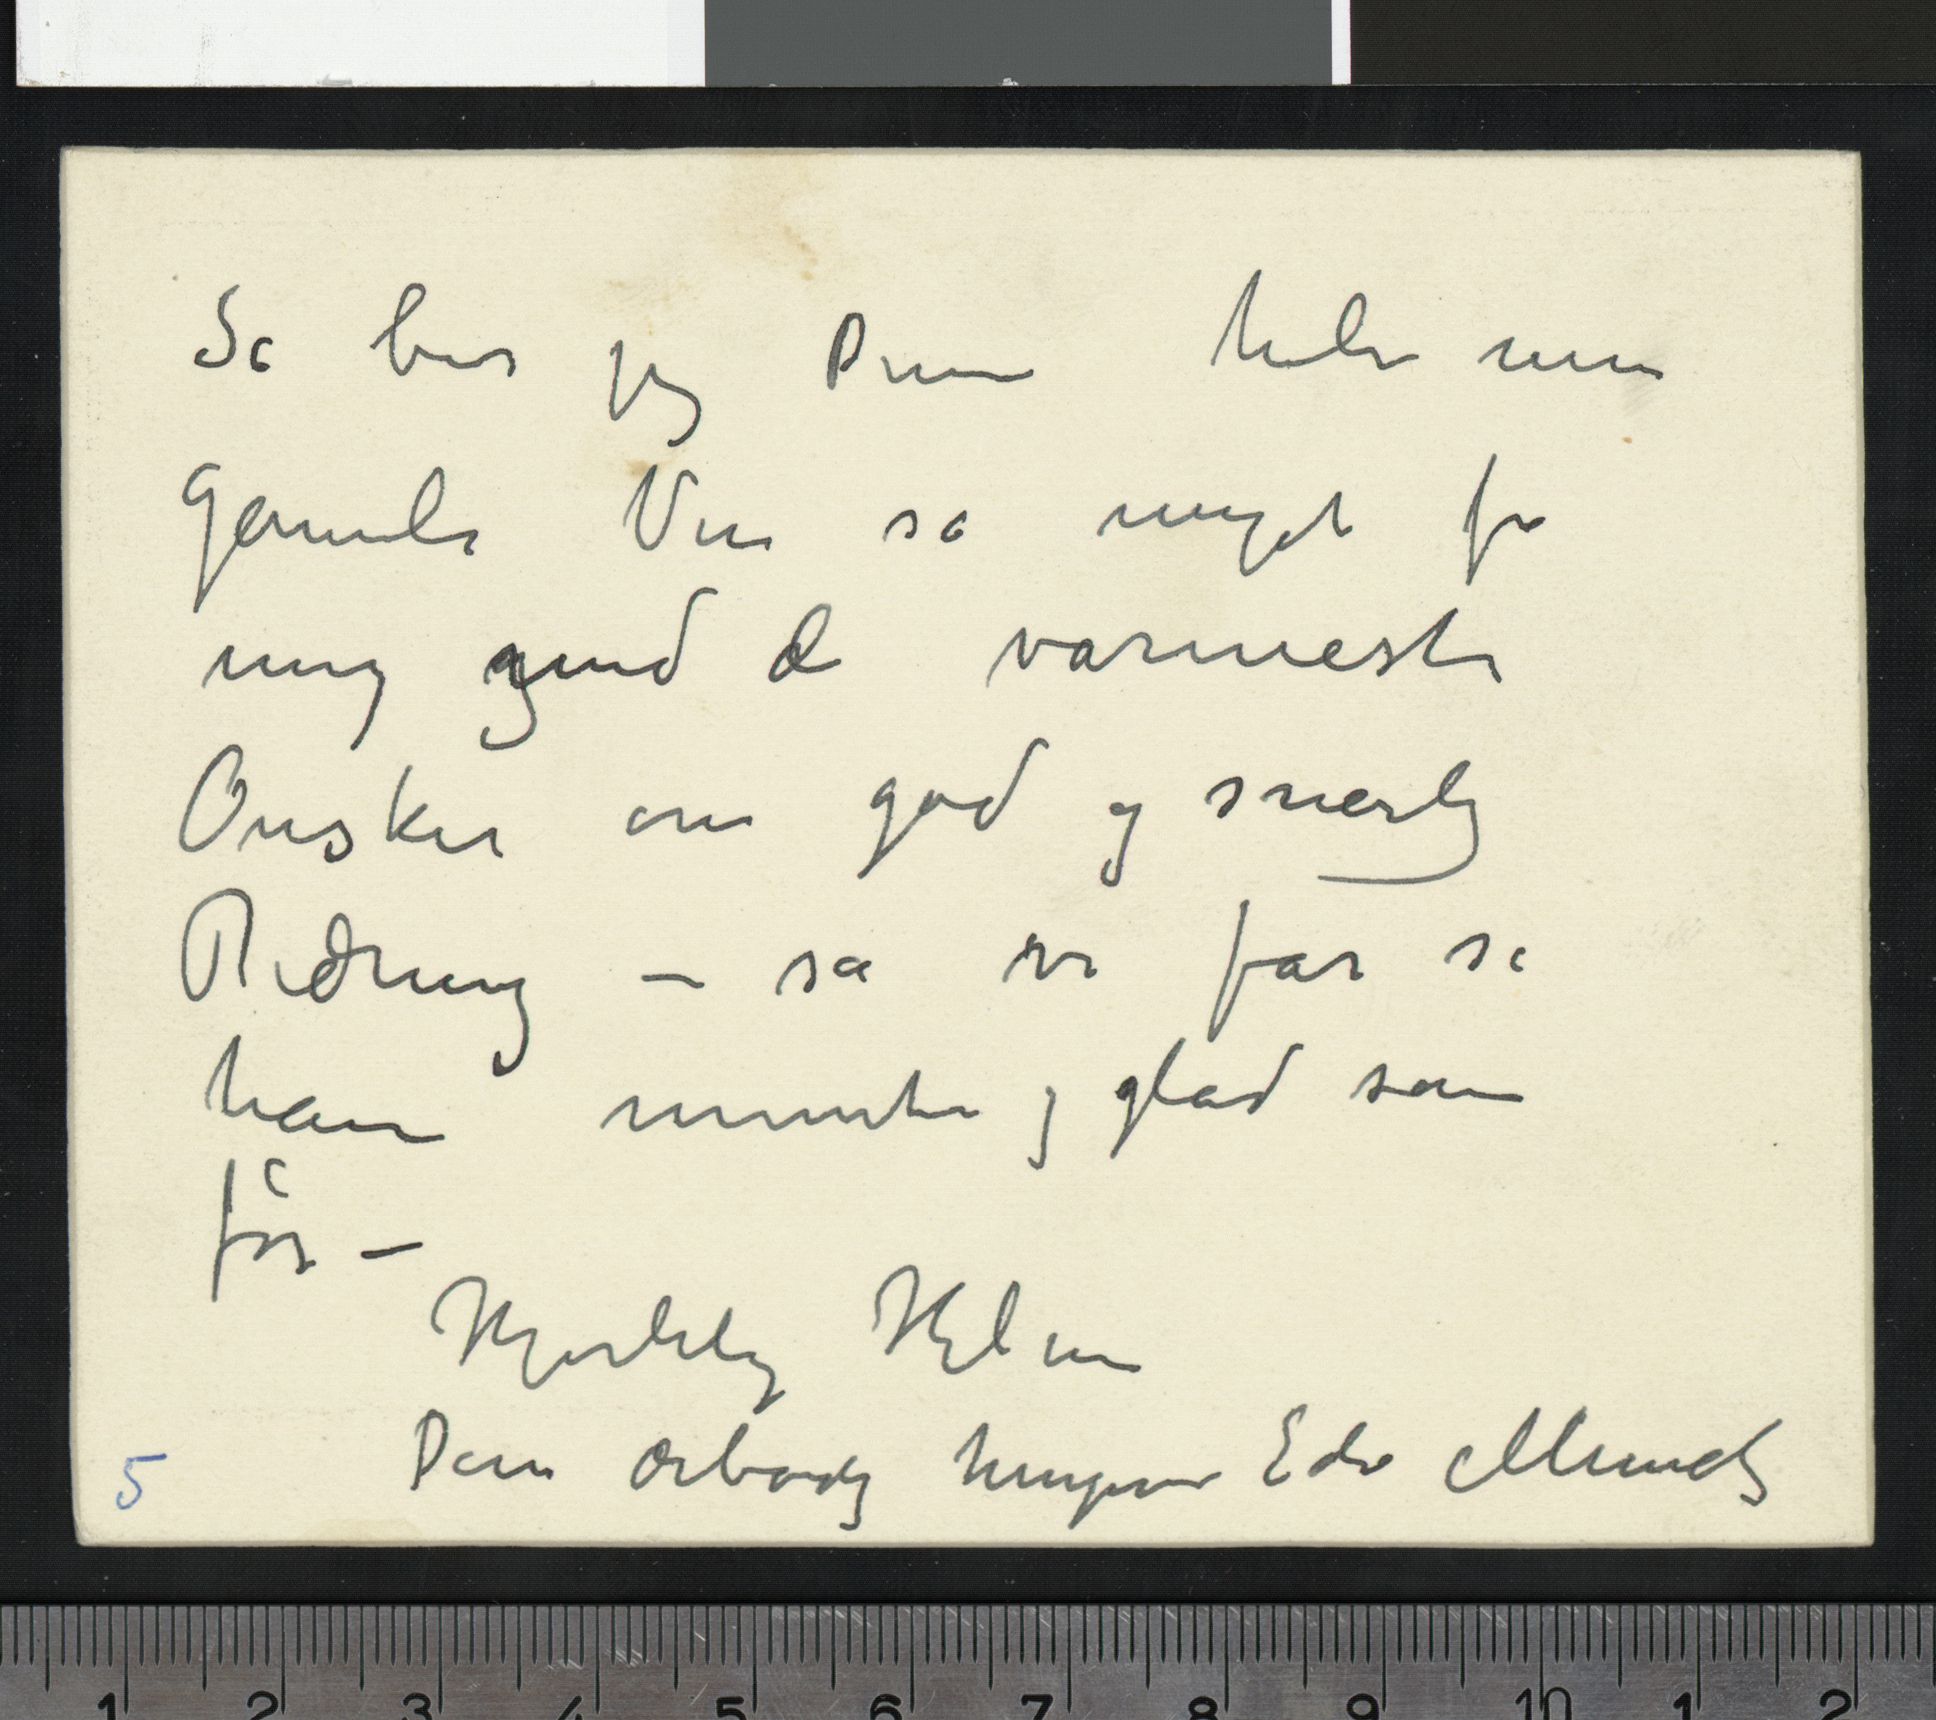 Så ber jeg Dem hilse min
gamle Ven så meget fra
mig med de varmeste
Ønsker om god og snarlig
Bedring – så vi får se
ham munter og glad som
før –
Hjertelig Hilsen
Deres ærbødig hengivne Edv Munch
5
1 2 3 4 5 6 7 8 9 10 1 2